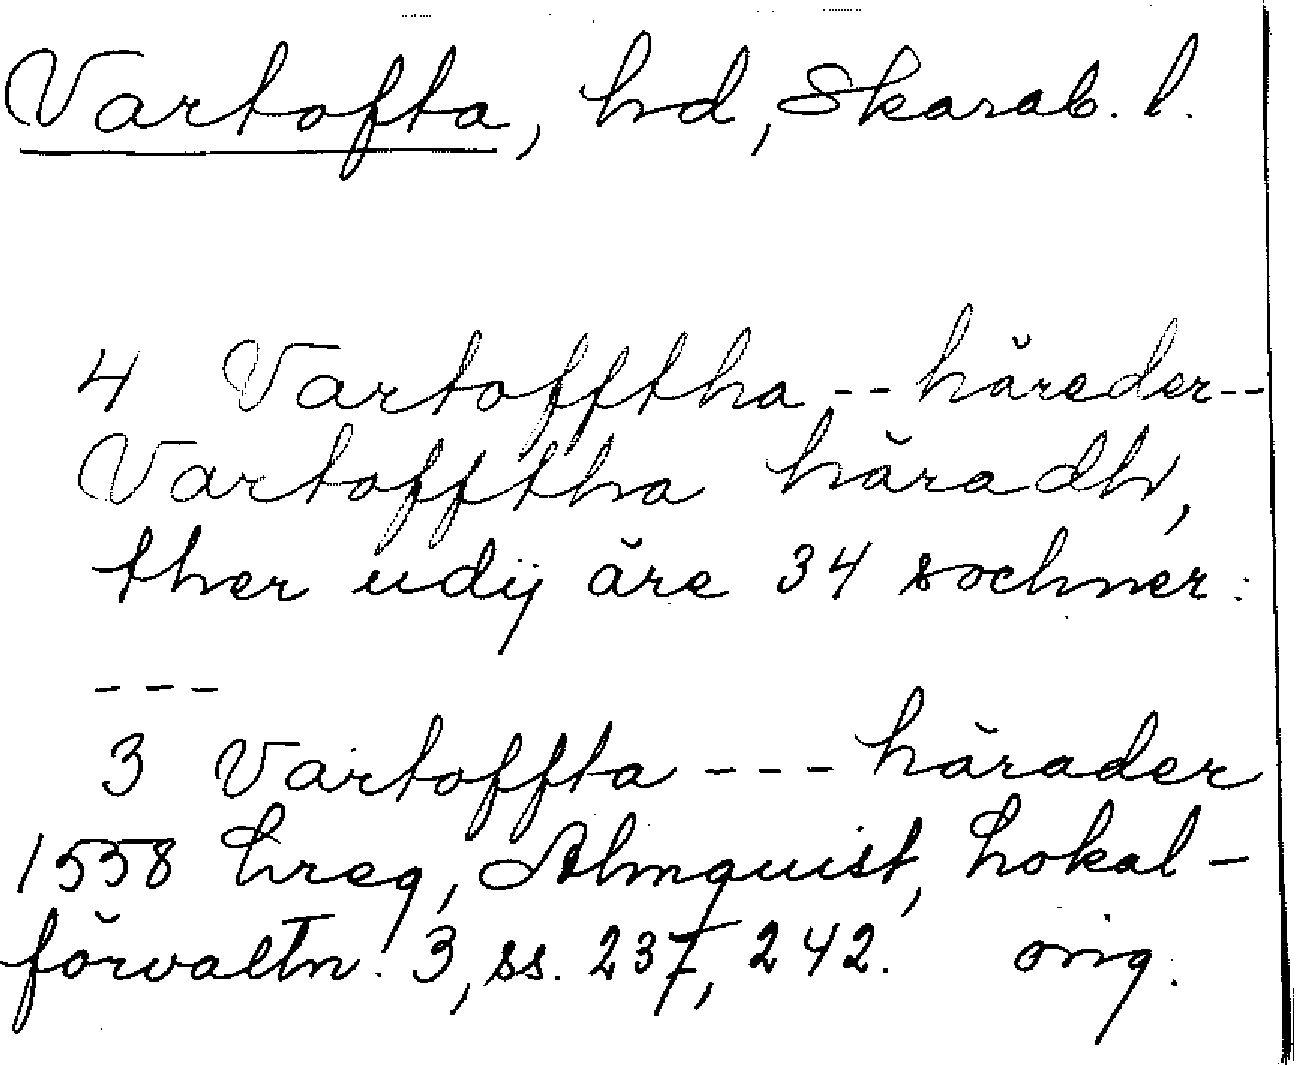 Vartofta, hd, Skarab. l.
4 Vartofftha -- häreder --
Vartofftha häradh,
ther udij äre 34 sochner:
---
3 Vartoffta --- härader
1558 Lreg, Almquist, Lokal-
förvaltn. 3, ss. 237, 242. orig.